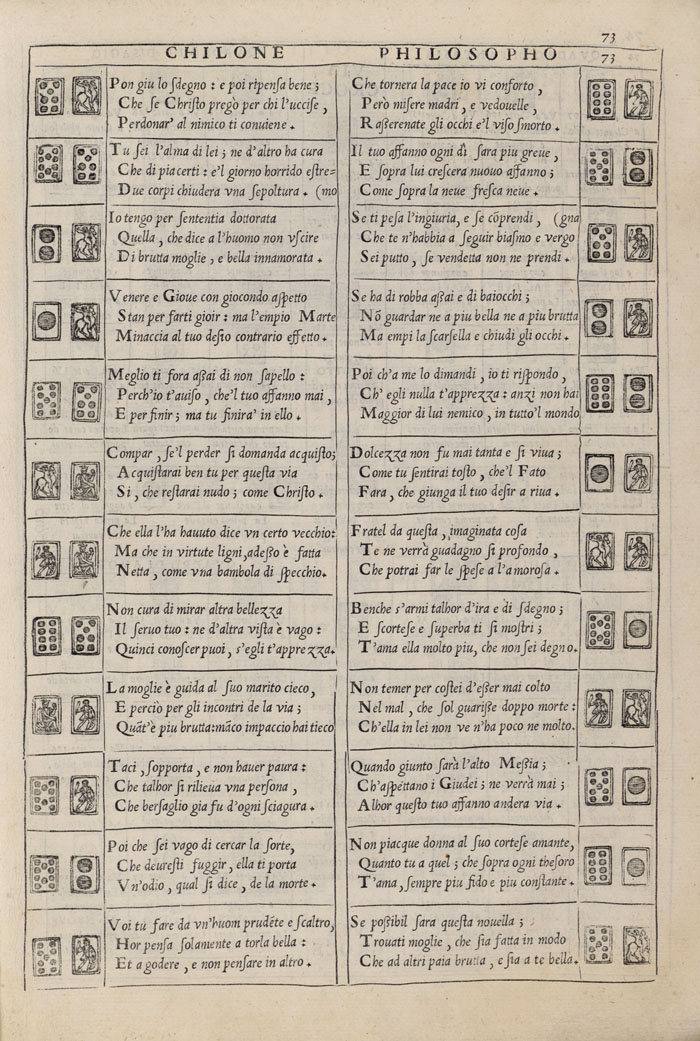 73
CHILONE PHILOSOPHO 73
Pon giu lo ſdegno : e poi ripenſa bene ;
Che ſe Chriſto pregò per chi l'ucciſe ,
Perdonar' al nimico ti conuiene .
Tu ſei l'alma di lei ; ne d'altro ha cura
Che di piacerti : e'l giorno horrido eſtre=
Due corpi chiudera vna ſepoltura . (mo
Io tengo per ſententia dottorata
Quella , che dice a l'huomo non vſcire
Di brutta moglie , e bella innamorata .
Venere e Gioue con giocondo aſpetto
Stan per farti gioir : ma l'empio Marte
Minaccia al tuo deſio contrario effetto .
Meglio ti fora aſſai di non ſapello :
Perch'io t'auiſo , che'l tuo affanno mai ,
E per finir ; ma tu finira' in ello .
Compar , ſe'l perder ſi domanda acquiſto;
Acquiſtarai ben tu per queſta via
Si , che reſtarai nudo ; come Chriſto .
Che ella l'ha hauuto dice vn certo vecchio:
Ma che in virtute ligni , adeſſo è fatta
Netta , come vna bambola di ſpecchio.
Non cura di mirar altra bellezza
Il ſeruo tuo : ne d'altra viſta è vago :
Quinci conoſcer puoi , s'egli t'apprezza.
La moglie è guida al ſuo marito cieco,
E perciò per gli incontri de la via ;
Quãt'è piu brutta:mãco impaccio hai tieco
Taci , ſopporta , e non hauer paura :
Che talhor ſi rilieua vna perſona ,
Che berſaglio gia fu d'ogni ſciagura .
Poi che ſei vago di cercar la ſorte,
Che deureſti fuggir , ella ti porta
Vn'odio , qual ſi dice , de la morte .
Voi tu fare da vn'huom prudẽte e ſcaltro,
Hor penſa ſolamente a torla bella :
Et a godere , e non penſare in altro .
Che tornera la pace io vi conforto ,
Però miſere madri , e vedouelle ,
Raſſerenate gli occhi e'l viſo ſmorto .
Il tuo affanno ogni dì ſara piu greue ,
E ſopra lui creſcera nuouo affanno ;
Come ſopra la neue freſca neue .
Se ti peſa l'ingiuria, e ſe cõprendi , (gna
Che te n'habbia a ſeguir biaſmo e vergo
Sei putto , ſe vendetta non ne prendi .
Se ha di robba aſſai e di baiocchi ;
Nõ guardar ne a piu bella ne a piu brutta
Ma empi la ſcarſella e chiudi gli occhi .
Poi ch'a me lo dimandi , io ti riſpondo ,
Ch' egli nulla t'apprezza : anzi non hai
Maggior di lui nemico , in tutto'l mondo
Dolcezza non fu mai tanta e ſi viua ;
Come tu ſentirai toſto , che'l Fato
Fara , che giunga il tuo deſir a riua .
Fratel da queſta , imaginata coſa
Te ne verrà guadagno ſi profondo ,
Che potrai far le ſpeſe a l'amoroſa .
Benche s'armi talhor d'ira e di ſdegno ;
E ſcorteſe e ſuperba ti ſi moſtri ;
T'ama ella molto piu, che non ſei degno.
Non temer per coſtei d'eſſer mai colto
Nel mal , che ſol guariſſe doppo morte :
Ch'ella in lei non ve n'ha poco ne molto.
Quando giunto ſarà l'alto Meſſia ;
Ch'aſpettano i Giudei ; ne verrà mai ;
Alhor queſto tuo affanno andera via .
Non piacque donna al ſuo corteſe amante,
Quanto tu a quel ; che ſopra ogni theſoro
T'ama , ſempre piu fido e piu conſtante .
Se poſſibil ſara queſta nouella ;
Trouati moglie , che ſia fatta in modo
Che ad altri paia brutta , e ſia a te bella.